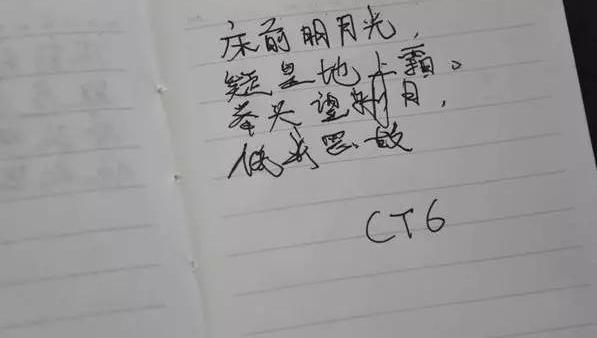 床前明月光，
疑是地上霜。
举头望明月，
低头思故
CT6